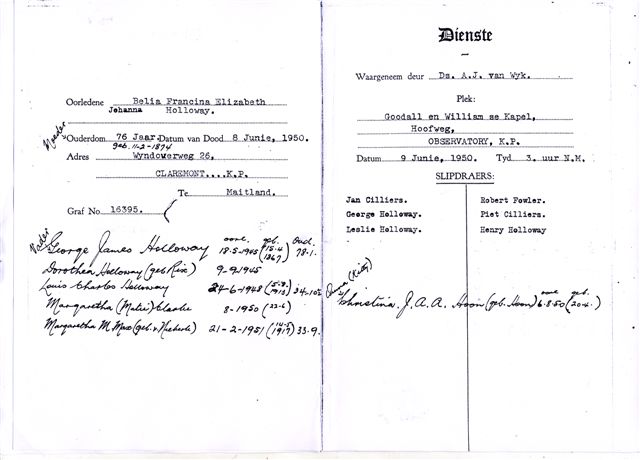 Oorledene Belia Francina Elizabeth
Johanna Holloway.
Moeder
Ouderdom 76 Jaar. Datum van Dood 8 Junie, 1950.
geb. 11-2-1874
Adres Wyndowerweg 26,
CLAREMONT....K.P.
Te Maitland.
Graf No. 16395.
Vader
oorl. geb. Oud.
George James Holloway 18-5-1945 (15-4 1867) 78-1.
Dorothea Holloway (geb Rix) 9-9-1945
Louis Charles Holloway 24-6-1948
Margaretha Clarke 8-1950 (22-6)
Margaretha M. 21-2-1951 (14-5 1917) 33-9.
Dienste
Waargeneem deur Ds. A.J. van Wyk.
Plek:
Goodall en William se Kapel,
Hoofweg,
OBSERVATORY, K.P.
Datum 9 Junie, 1950. Tyd 3. uur N.M.
SLIPDRAERS:
Jan Cilliers. Robert Fowler.
George Holloway. Piet Cilliers.
Leslie Holloway. Henry Holloway
(Kitty)
oorl. geb.
Christina J. A. A. Hoon (geb. Hoon) 6-8-50 (20-4-)